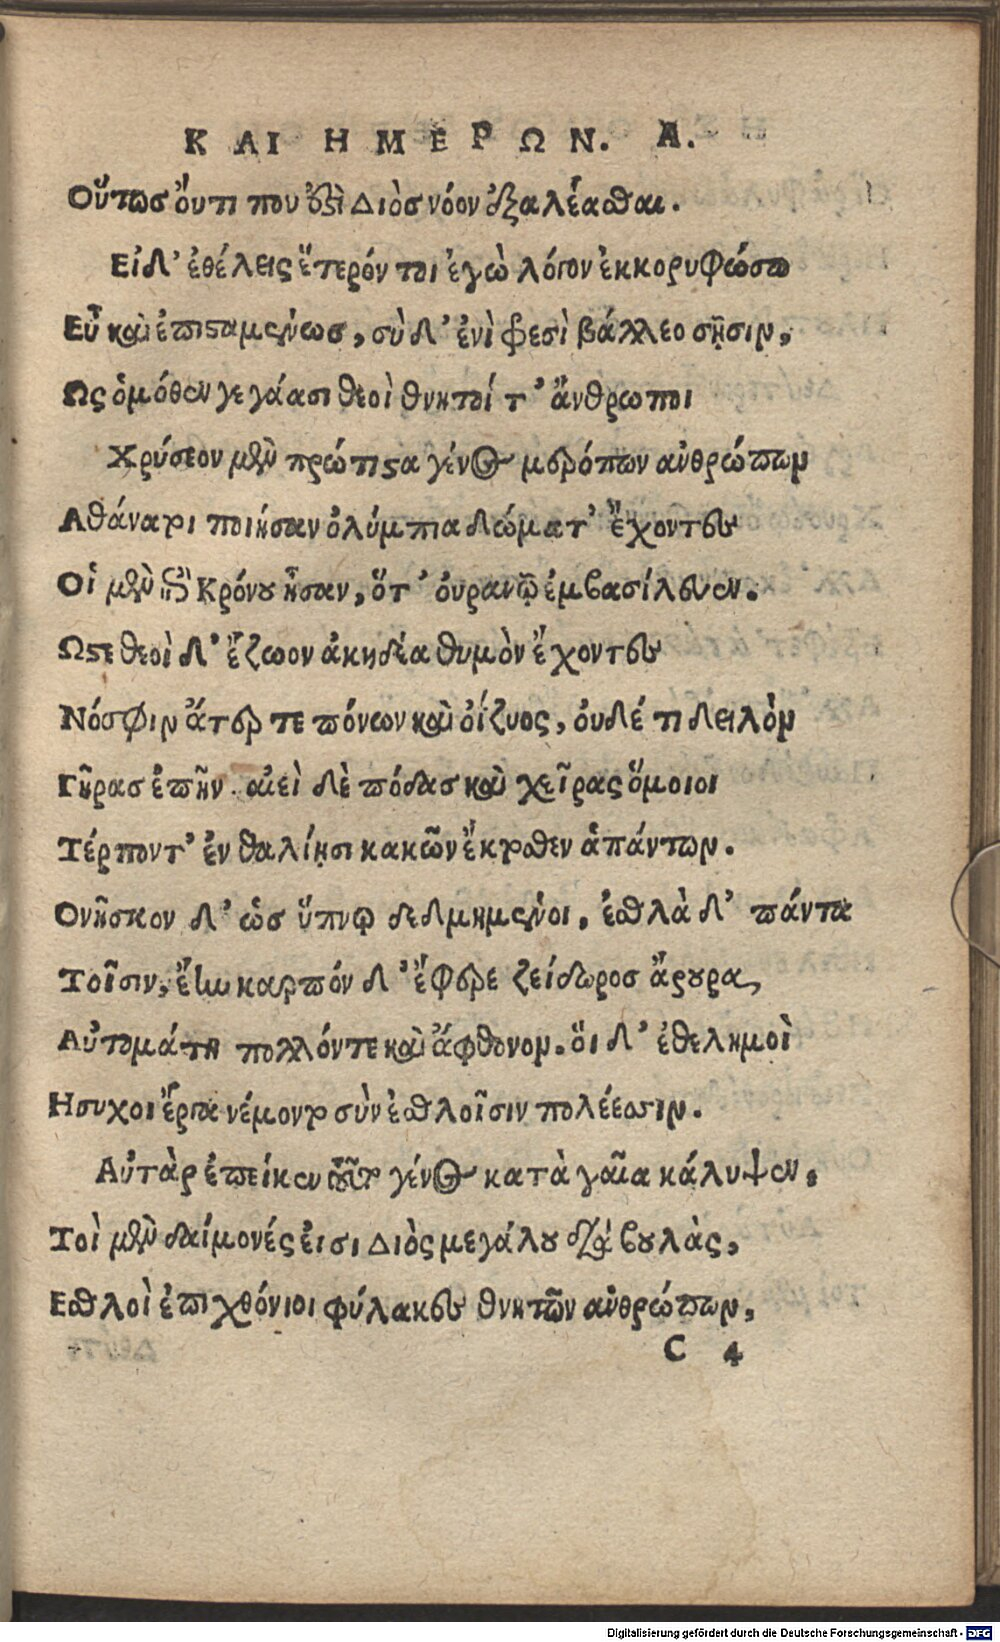 ΚΑΙ ΗΜΕΡΩΝ. Α.
Οὕτως ὄυτι που ἐστὶ Διὸς νόον ἐξαλέασθαι.
Εἰ δ' ἐθέλεις ἕτερόν τοι ἐγὼ λόγον ἐκκορυφώσω
Εὖ καὶ ἐπισταμένως, σὺ δ' ἐνὶ φρεσὶ βάλλεο σῇσιν,
Ως ὁμόθεν γεγάασι θεοὶ θνητοί τ' ἄνθρωποι
Χρύσεον μὲν πρώτιστα γένος μερόπων ἀνθρώπων
Αθάναται ποιήσαν ὀλύμπια δώματ' ἔχοντες
Οἱ μὲν ἐπὶ Κρόνου ἦσαν, ὅτ' ὀυρανῷ ἐμβασίλευεν.
Ωστε θεοὶ δ' ἔζωον ἀκηδέα θυμὸν ἔχοντες
Νόσφιν ἄτερ τε πόνων καὶ οἰζυος, ὀυδέ τι δειλὸν
Γῆρας ἐπῆν. αἰεὶ δὲ πόδας καὶ χεῖρας ὅμοιοι
Τέρποντ' ἐν θαλίῃσι κακῶν ἔκτοσθεν ἁπάντων.
Θνῆσκον δ' ὡς ὕπνῳ δεδμημένοι, ἐσθλὰ δ' πάντα
Τοῖσιν, ἔην καρπόν δ' ἔφερε ζείδωρος ἄρουρα,
Αὐτομάτη πολλόντε καὶ ἄφθονον. ὅι δ' ἐθελημοὶ
Ησυχοι ἔργα νέμονται σὺν ἐσθλοῖσιν πολέεσσιν.
Αὐτὰρ ἐπείκεν τοῦτο γένος κατὰ γαῖα κάλυψεν,
Τοὶ μὲν δαίμονές ἐισι Διὸς μεγάλου διὰ βουλὰς,
Εσθλοὶ ἐπιχθόνιοι φύλακες θνητῶν ἀνθρώπων,
C 4
Digitalisierung gefördert durch die Deutsche Forschungsgemeinschaft - DFG